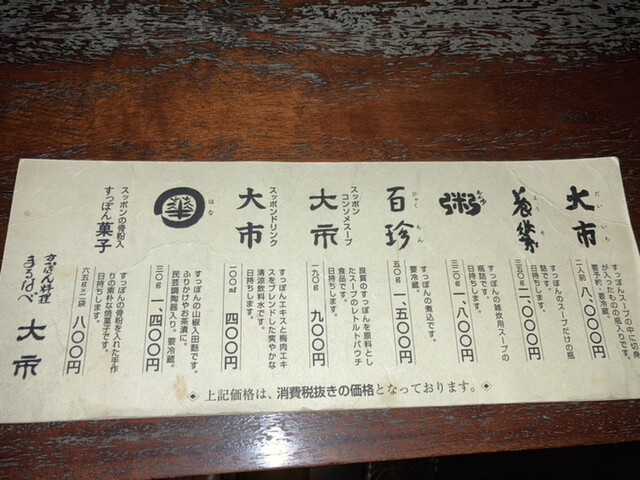 だいいち
大市
すっぽんスープの中に切身
が入ったもの瓶入りです。
要予約、要冷蔵。
二人前 八、〇〇〇円
すっぽんのスープだけの瓶
詰です。
日持ちします。
三五〇g 二、〇〇〇円
粥
すっぽんの雑炊用スープの
瓶詰です。
日持ちします。
三二〇g 一、八〇〇円
ひゃくちん
百珍
すっぽんの煮込です。
要冷蔵。
五〇g 一、五〇〇円
スッポン
コンソメスープ
大市
良質のすっぽんを原料とし
たスープのレトルトパウチ
食品です。
日持ちします。
一九〇g 九〇〇円
スッポンドリンク
大市
すっぽんエキスと梅肉エキ
スをブレンドした爽やかな
清涼飲料水です。
日持ちします。
一〇〇mℓ 四〇〇円
はな
華
すっぽんの山椒入田麩です。
ふりかけやお茶漬に。
民芸調陶器入り。要冷蔵。
三〇g 一、四〇〇円
スッポンの骨粉入
すっぽん菓子
すっぽんの骨粉を入れた手作
りの素朴な焼菓子です。
日持ちします。
六五g×二袋 八〇〇円
すっぽん料理
まるなべ 大市
◈ 上記価格は、消費税抜きの価格となっております。◈